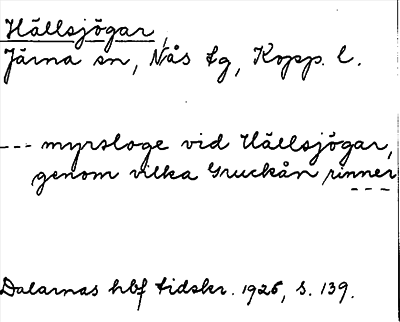 Hällsjögar,
Järna sn, Nås tg, Kopp. l.
--- myrsloge vid Hällsjögar,
genom vilka Gruckån rinner
---
Dalarnas hbf tidskr. 1926, s. 139.